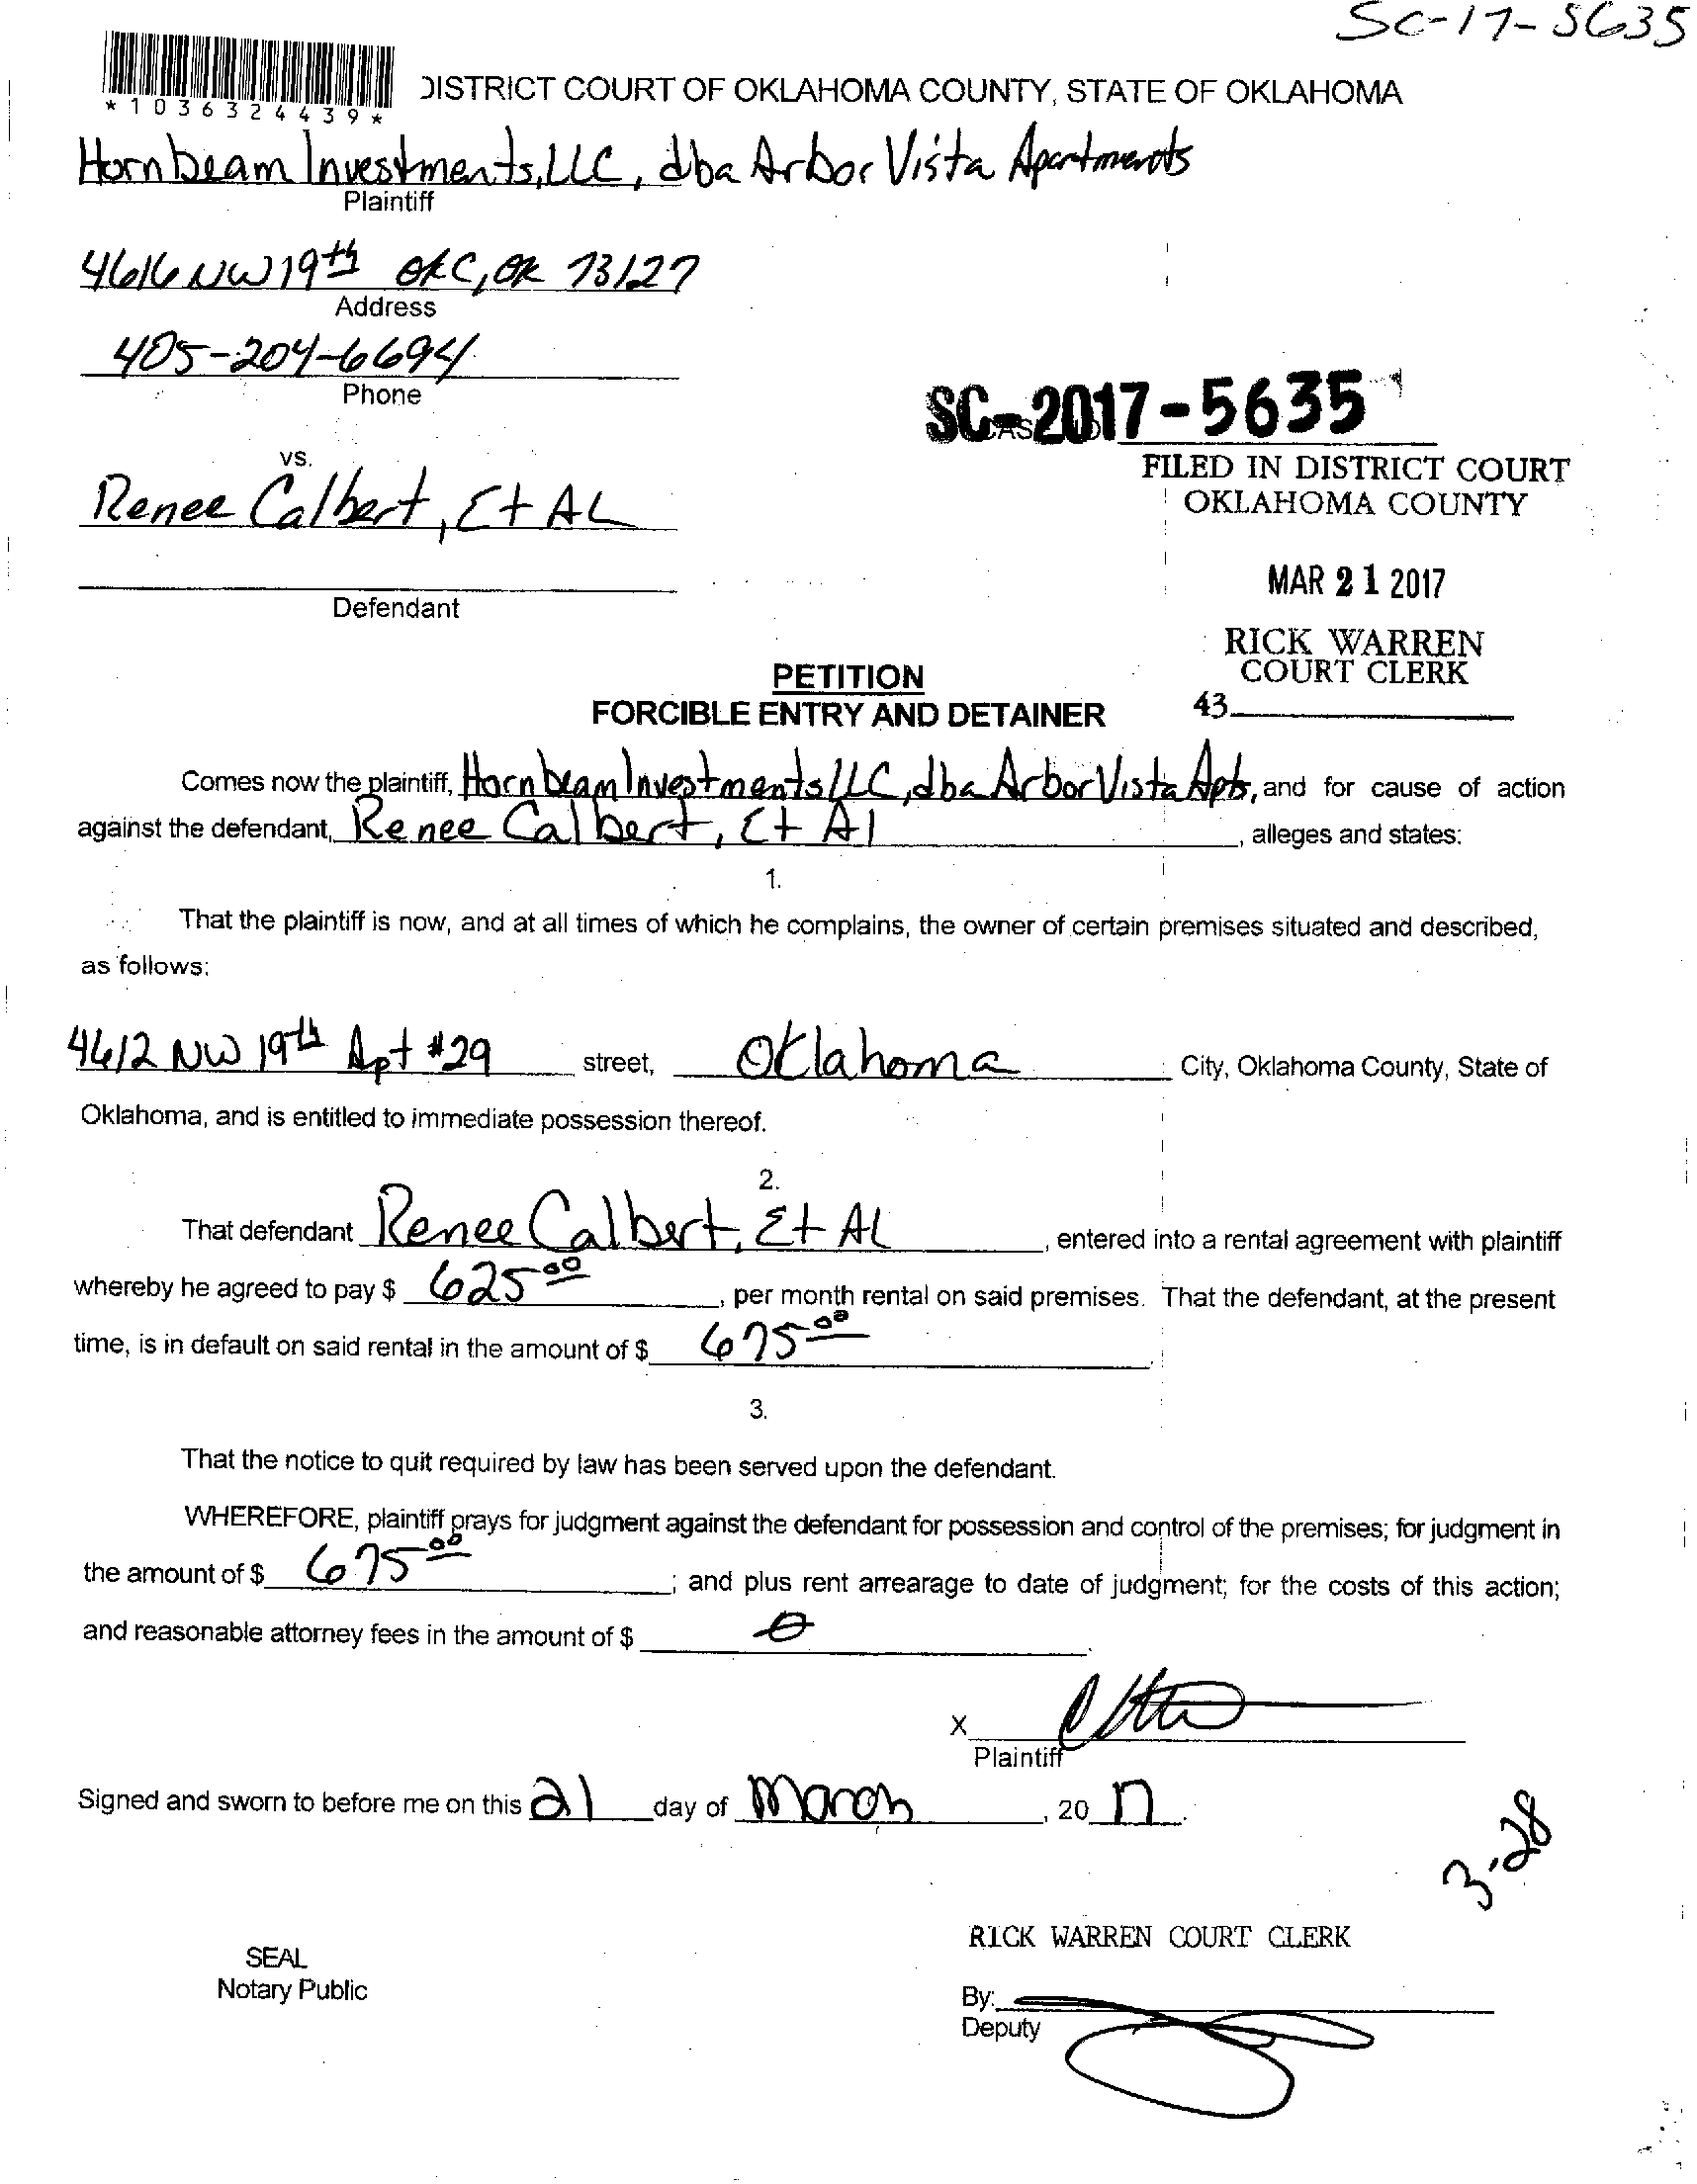 SC-17-5635
*1036324439*
DISTRICT COURT OF OKLAHOMA COUNTY, STATE OF OKLAHOMA
Hornbeam Investments, LLC, dba Arbor Vista Apartments
Plaintiff
4616 NW 19th OKC, OK 73127
Address
405-204-6694
Phone
SC-2017-5635
vs.
FILED IN DISTRICT COURT
OKLAHOMA COUNTY
Renee Calbert, Et AL
MAR 21 2017
Defendant
RICK WARREN
COURT CLERK
43
PETITION
FORCIBLE ENTRY AND DETAINER
Comes now the plaintiff, Hornbeam Investments LLC, dba Arbor Vista Apts, and for cause of action
against the defendant, Renee Calbert, Et Al, alleges and states:
1.
That the plaintiff is now, and at all times of which he complains, the owner of certain premises situated and described,
as follows:
4612 NW 19th Apt #29 street, Oklahoma City, Oklahoma County, State of
Oklahoma, and is entitled to immediate possession thereof.
2.
That defendant Renee Calbert, Et AL, entered into a rental agreement with plaintiff
whereby he agreed to pay $ 625 00, per month rental on said premises. That the defendant, at the present
time, is in default on said rental in the amount of $ 675 00.
3.
That the notice to quit required by law has been served upon the defendant.
WHEREFORE, plaintiff prays for judgment against the defendant for possession and control of the premises; for judgment in
the amount of $ 675 00; and plus rent arrearage to date of judgment; for the costs of this action;
and reasonable attorney fees in the amount of $ 0.
X
Plaintiff
Signed and sworn to before me on this 21 day of March, 20 17.
3-28
RICK WARREN COURT CLERK
SEAL
Notary Public
By:
Deputy